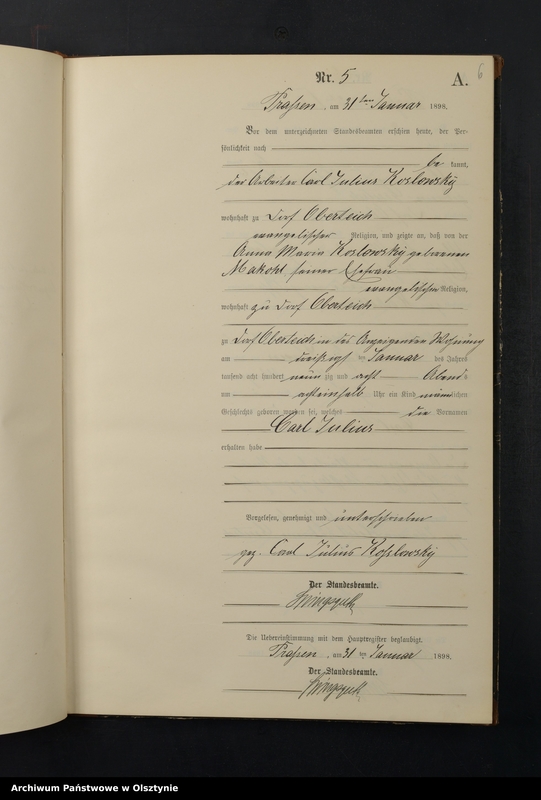 6
Nr. 5
A.
am 31ten Januar 1898.
Vor dem unterzeichneten Standesbeamten erschien heute, der Per-
sönlichkeit nach
be kannt,
der Arbeiter Carl Julius Koslowsky
wohnhaft zu Dorf Oberteich
evangelischer Religion, und zeigte an, daß von der
Anna Maria Koslowsky geborenen
Makohl seiner Ehefrau
evangelischer Religion,
wohnhaft zu Dorf Oberteich
zu Dorf Oberteich in des Anzeigenden Wohnung
am dreißigst ten Januar des Jahres
tausend acht hundert neun zig und acht Abends
um achteinhalb Uhr ein Kind männlichen
Geschlechts geboren worden sei, welches die Vornamen
Carl Julius
erhalten habe
Vorgelesen, genehmigt und unterschrieben
gez. Carl Julius Koslowsky
Der Standesbeamte.
Die Uebereinstimmung mit dem Hauptregister beglaubigt.
am 31 ten Januar 1898.
Der Standesbeamte.
Archiwum Państwowe w Olsztynie